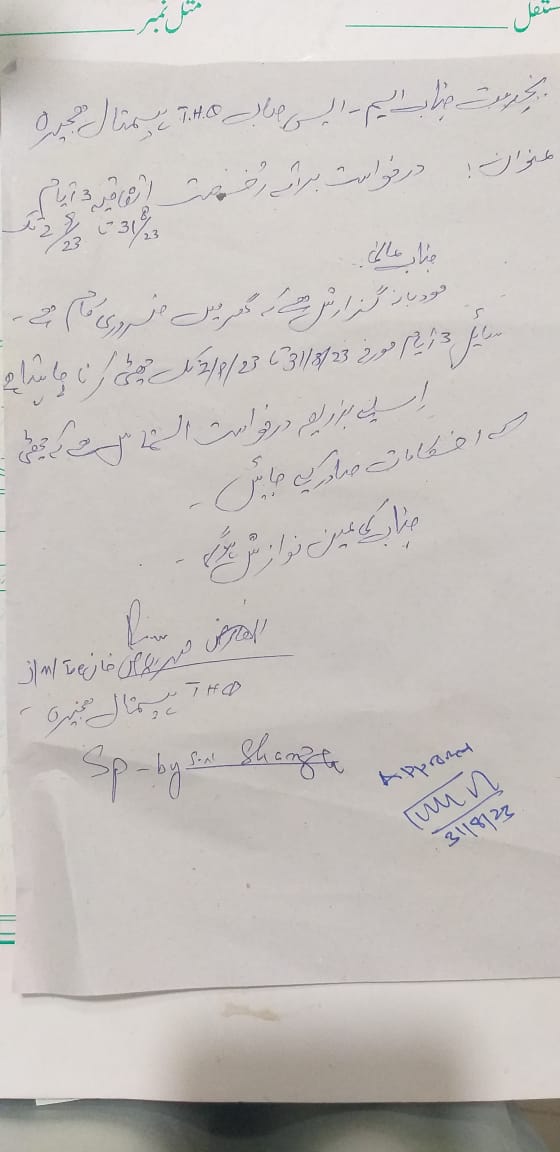 مثل نمبر
بخدمت جناب ایم - ایس صاحب T.H.Q ہسپتال ہجیرہ
عنوان: درخواست برائے رخصت اتفاقیہ 3 ایام
31/8/23 تا 2/9/23 تک
جناب عالی
مودبانہ گزارش ہے کہ گھر میں ضروری کام ہے -
سائل 3 ایام مورخہ 31/8/23 تا 2/9/23 تک چھٹی کرنا چاہتا ہے
اسلیے بذریعہ درخواست التماس ہے کہ چھٹی
کے احکامات صادر کیے جائیں -
جناب کی عین نوازش ہوگی -
العارض
THQ ہسپتال ہجیرہ -
Sp - by Shanza
Approved
31/8/23